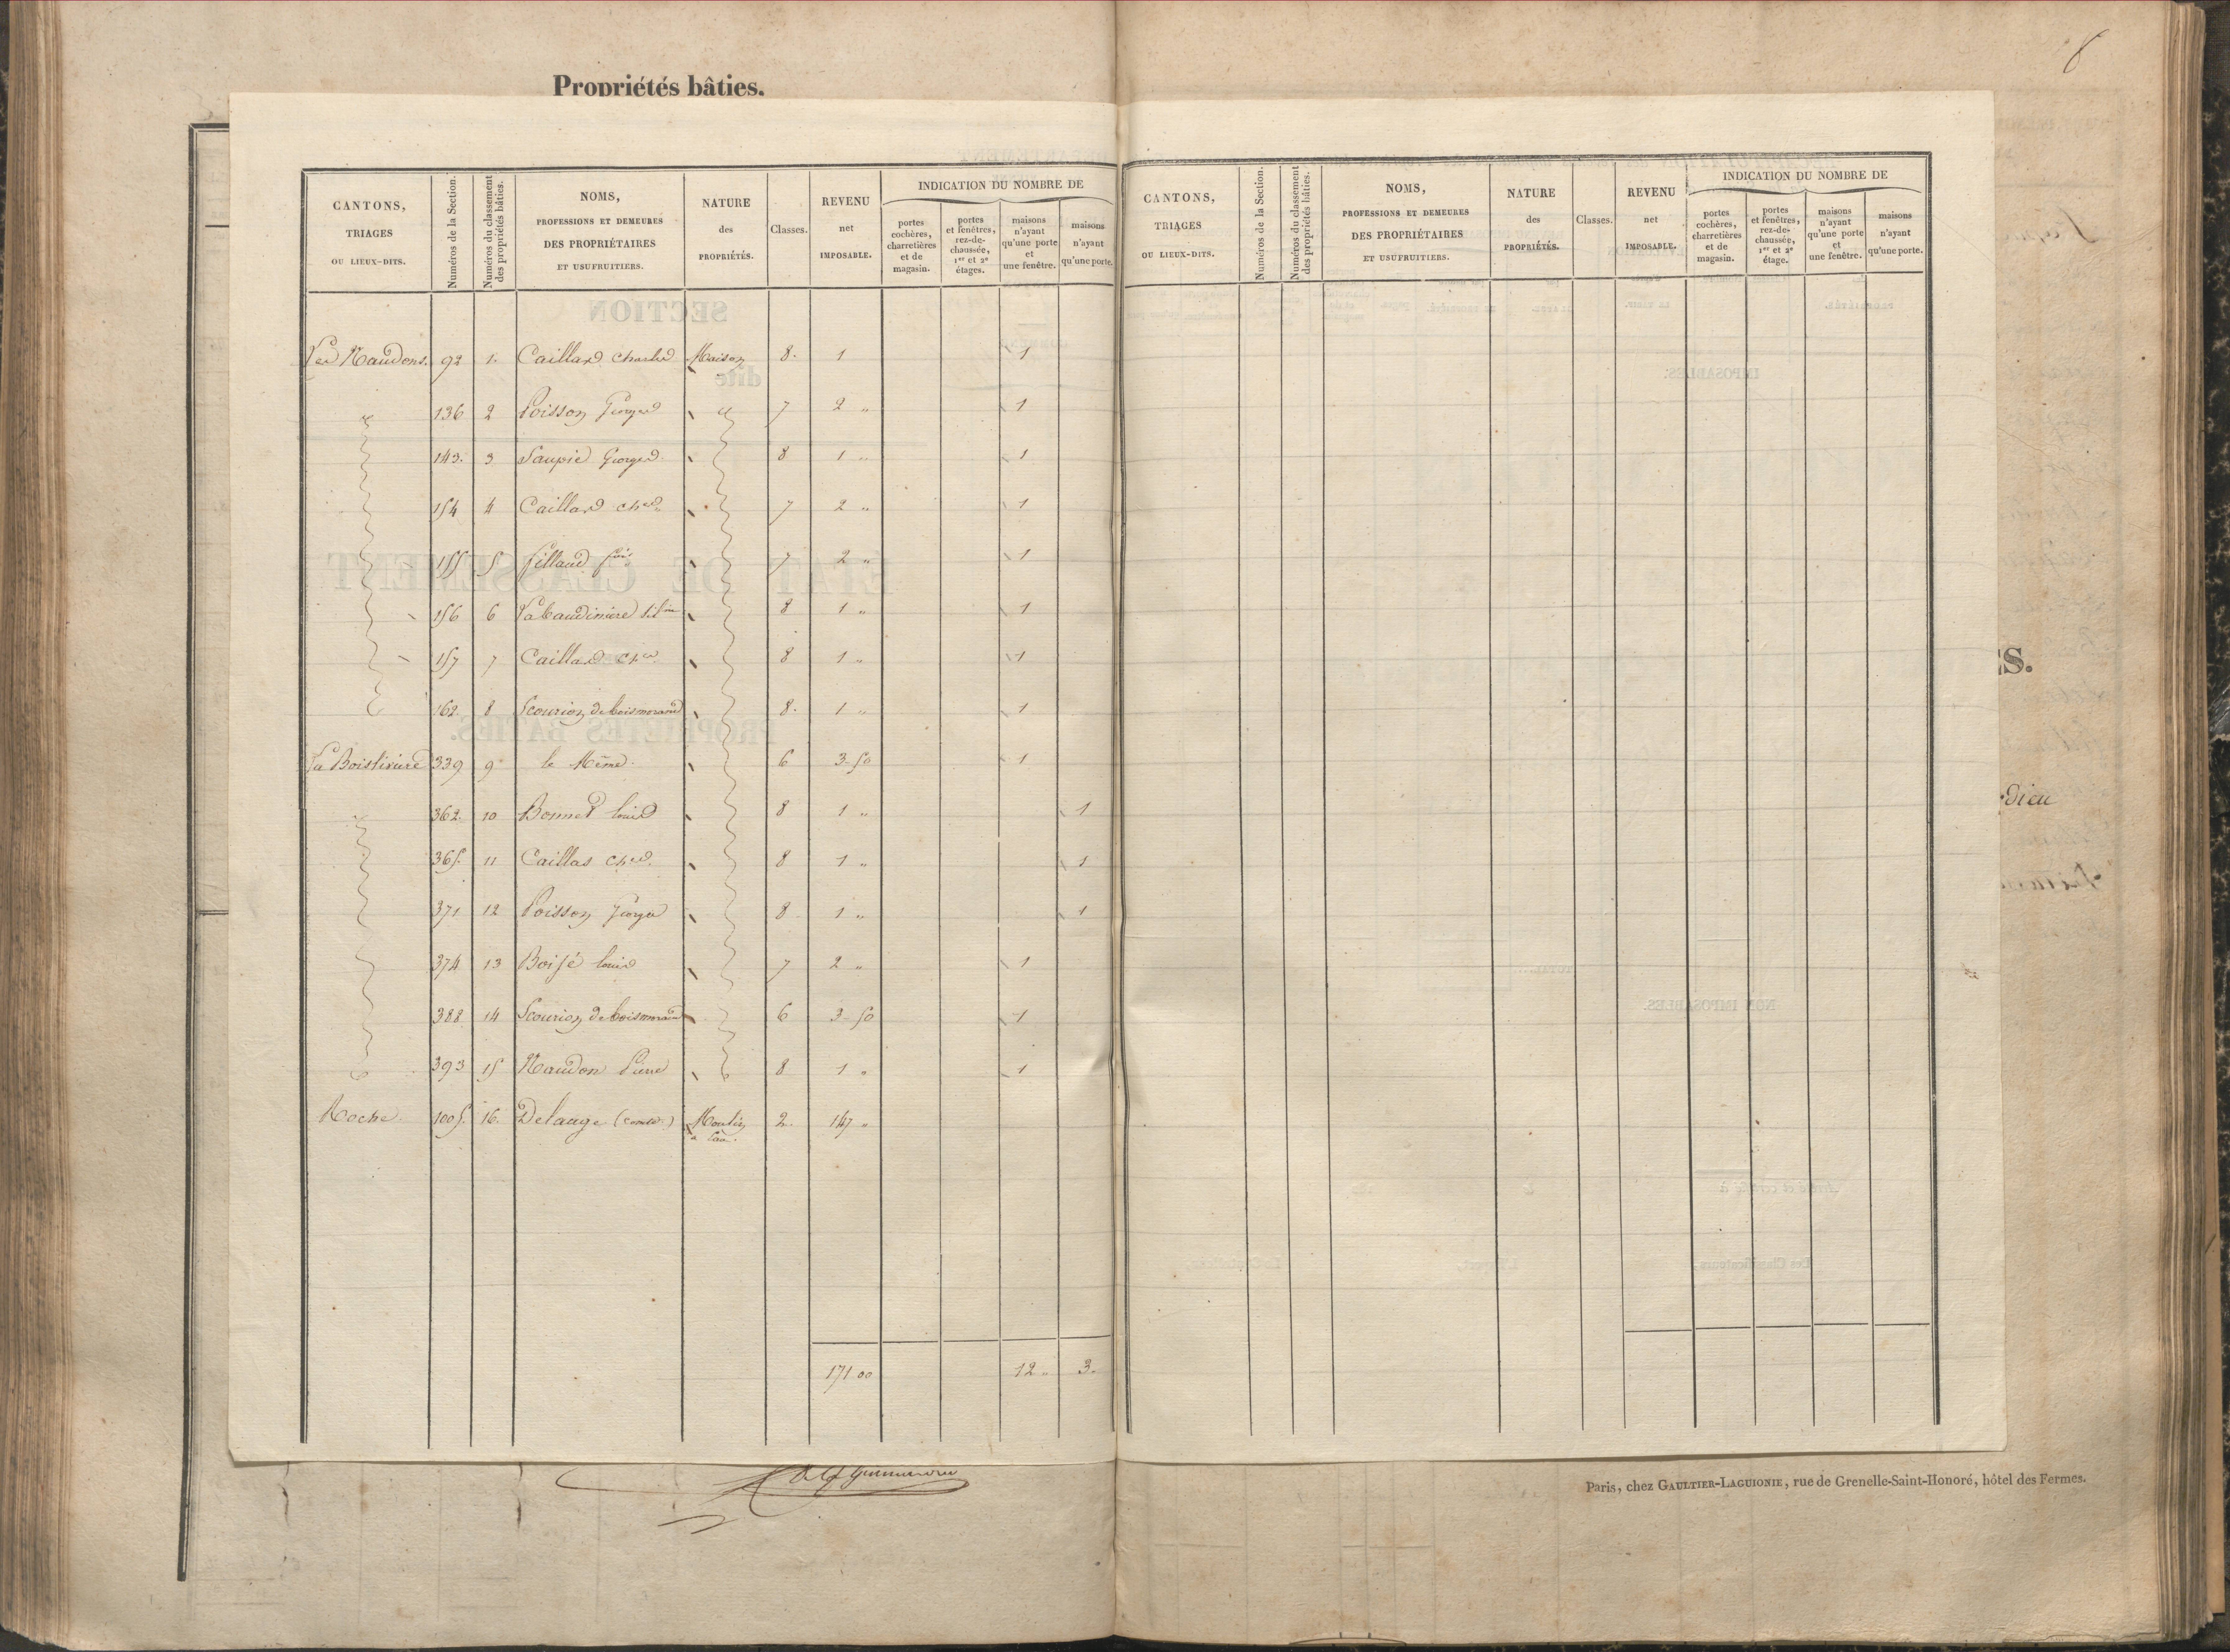 Propriétés bâties.
CANTONS, TRIAGES OU LIEUX-DITS.
Numéros de la Section.
Numéros du classement des propriétés bâties.
NOMS, PROFESSIONS ET DEMEURES DES PROPRIÉTAIRES ET USUFRUITIERS.
NATURE des PROPRIÉTÉS.
Classes.
REVENU net IMPOSABLE.
INDICATION DU NOMBRE DE
portes cochères, charretières et de magasin.
portes et fenêtres, rez-de-chaussée, 1er et 2e étages.
maisons n'ayant qu'une porte et une fenêtre.
maisons n'ayant qu'une porte.
Les Naudons. 92 1. Caillard Charles Maison 8. 1 1
136 2 Poisson Georges 7 2 „ 1
143. 3 Georges 8 1 „ 1
154 4 Caillard ches 7 2 „ 1
155 5 7 2 „ 1
156 6 8 1 „ 1
157 7 Caillard ches 8 1 „ 1
162 8 Scourion de boismorand 8. 1 „ 1
339 9 le Même. 6 3-50 1
362. 10 Bonnet louis 8 1 „ 1
365. 11 Caillas ches. 8 1 „ 1
371 12 Poisson George 8 1 „ 1
374 13 louis 7 2 „ 1
388 14 Scourion de boismorand 6 3-50 1
393 15 Naudon Pierre 8 1 „ 1
Roche. 1005. 16. Delauge Moulin à Eau. 2. 147 „
171 00 12 „ 3.
CANTONS, TRIAGES OU LIEUX-DITS.
Numéros de la Section.
Numéros du classement des propriétés bâties.
NOMS, PROFESSIONS ET DEMEURES DES PROPRIÉTAIRES ET USUFRUITIERS.
NATURE des PROPRIÉTÉS.
Classes.
REVENU net IMPOSABLE.
INDICATION DU NOMBRE DE
portes cochères, charretières et de magasin.
portes et fenêtres, rez-de-chaussée, 1er et 2e étage.
maisons n'ayant qu'une porte et une fenêtre.
maisons n'ayant qu'une porte.
ES.
dieu
Paris, chez GAULTIER-LAGUIONIE, rue de Grenelle-Saint-Honoré, hôtel des Fermes.